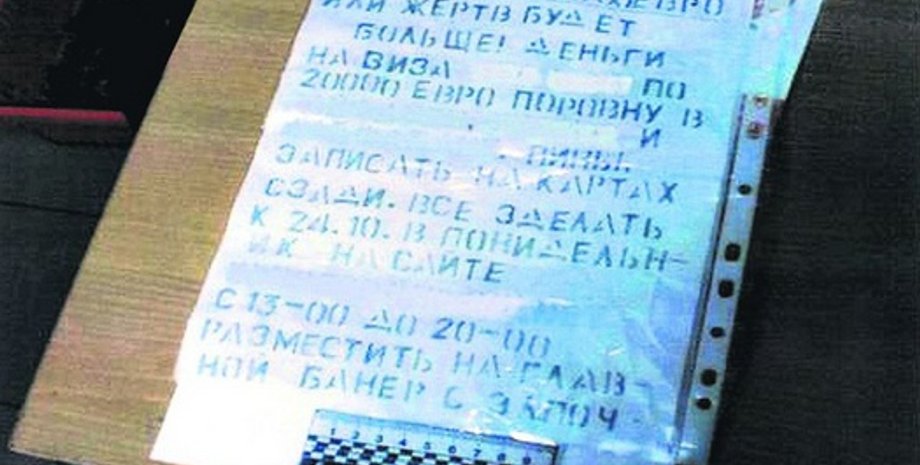 ЕВРО
ИЛИ ЖЕРТВ БУДЕТ
БОЛЬЩЕ! ДЕНЬГИ
НА ВИЗА ПО
20000 ЕВРО ПОРОВНУ В
И
ПИНЫ.
ЗАПИСАТЬ НА КАРТАХ
СЗАДИ. ВСЕ ЗДЕЛАТЬ
К 24.10. В ПОНИДЕЛЬН-
ИК НА САИТЕ
С 13-00 ДО 20-00
РАЗМЕСТИТЬ НА ГЛАВ-
НОЙ БАНЕР С ЭКЛЮЧ
1 2 3 4 5 6 7 8 9